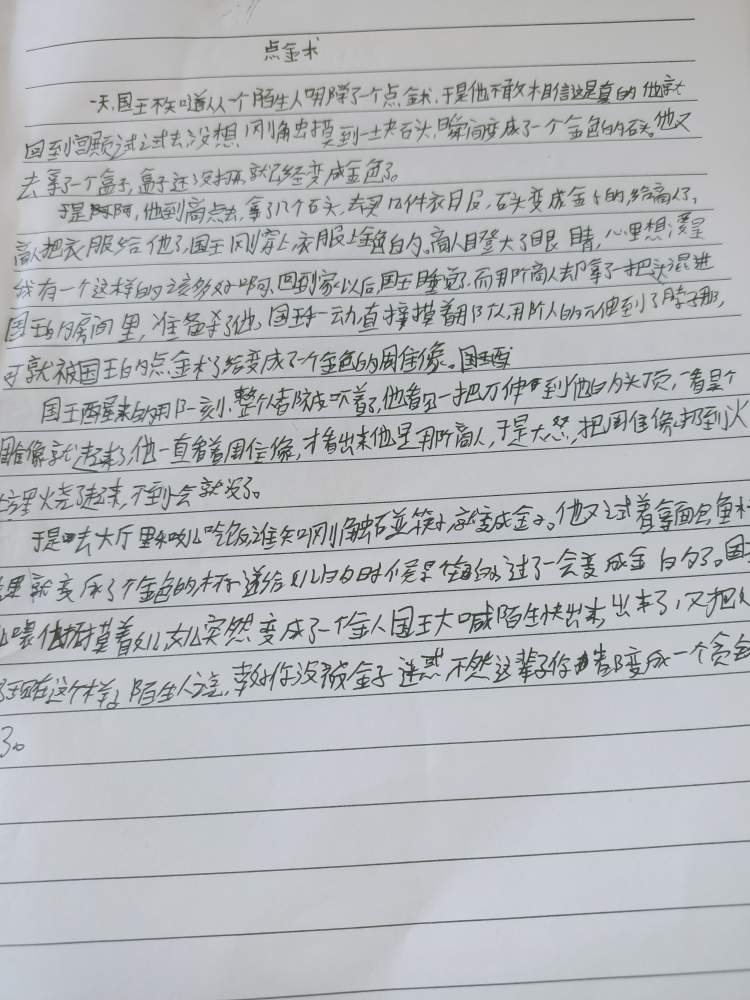 点金术
一天,国王不知道从一个陌生人那了一个点金术,于是他不敢相信这是真的他就
回到宫殿试过去,没想,刚触摸到一块石头,瞬间变成了一个金色的石头。他又
去拿了一个盒子,盒子还没打,就已经变成金色了。
于是啊,他到商店去,拿了几个石头,去买几件衣服,石头变成金子的,给商人了,
商人把衣服给他了,国王刚穿上,衣服上金色的。商人瞪大了眼睛,心里想要是
我有一个这样的该多好啊,回到家以后国王睡觉了,而那商人却拿了一把混进
国王的房间里,准备杀了他,国王一动,直接摸着那个人,那个人的刀伸到了脖子那,
可就被国王的点金术了给变成了一个金色的周佳像。国王
国王醒来的那一刻,整个都被吓着了,他看见一把刀伸到他的头顶,一看是个
像就起来了,他一直看着周佳像,才看出来他是那商人,于是大怒,把周佳像扔到火
里火烧了起来,不到会就没了。
于是去大厅里和女儿吃饭谁知刚触碰筷子变成金子。他又试着拿面包鱼
就变成了个金色的杯递给女儿的时候是的,过了一会变成金的了。国
喂他摸着女儿,女儿突然变成了一个金人国王大喊陌生快出来,出来了,又把
现在这个样,陌生人说,幸好你没被金子迷惑,不然这辈子你都变成一个贪
了。